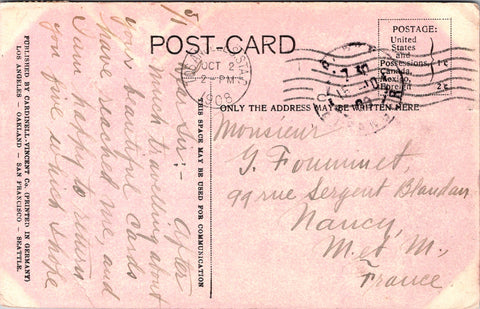 POST-CARD
POSTAGE:
United
States
and
Possessions
Canada,
Mexico,
Foreign
1c
2c
OCT 2
2-PM
1908
ONLY THE ADDRESS MAY BE WRITTEN HERE
THIS SPACE MAY BE USED FOR COMMUNICATION
Dear Sir; - After
much travelling about
your beautiful cards
have reached me and
I am happy to return
you five which I hope
Monsieur
G. Fommmet,
99 rue Sergent Blandan,
Nancy,
M. et M.,
France.
PUBLISHED BY CARDINELL-VINCENT Co. (PRINTED IN GERMANY)
LOS ANGELES - OAKLAND - SAN FRANCISCO - SEATTLE.